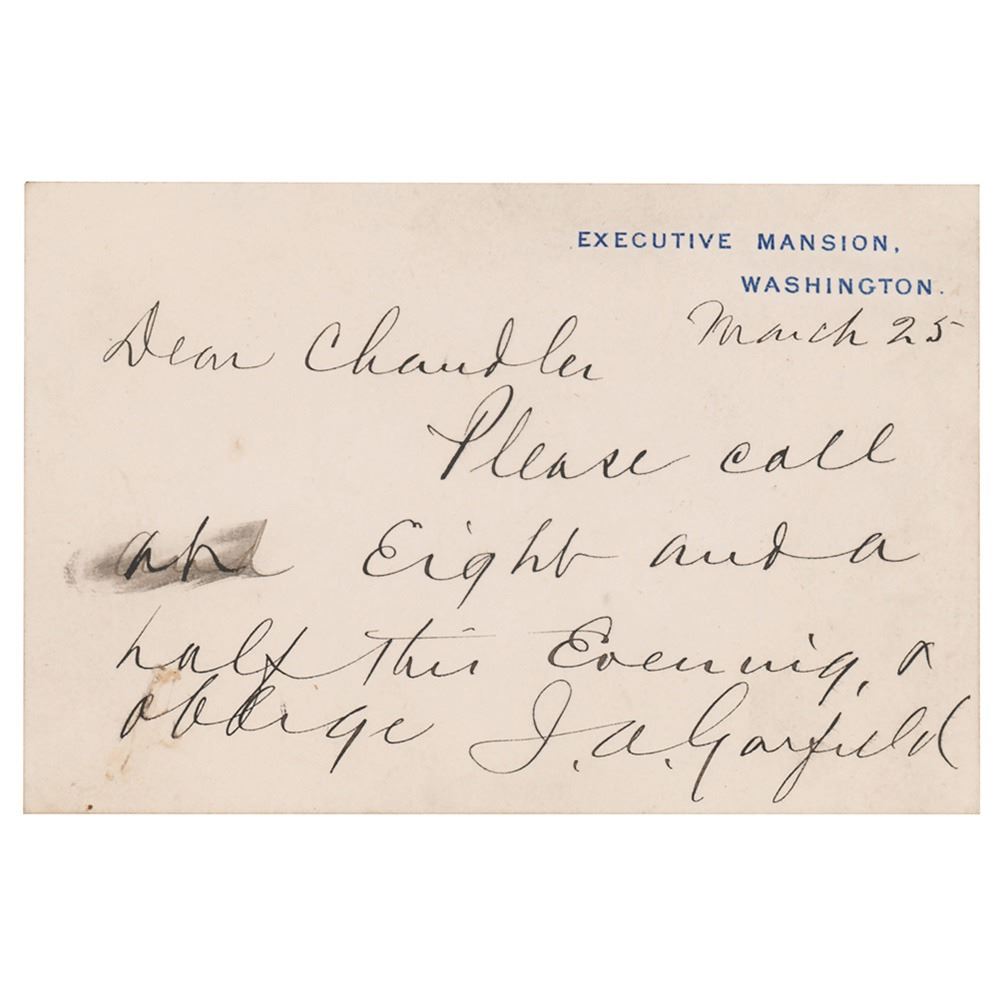 EXECUTIVE MANSION,
WASHINGTON.
March 25
Dear Chandler
Please call
at Eight and a
half this Evening, &
oblige J. A. Garfield